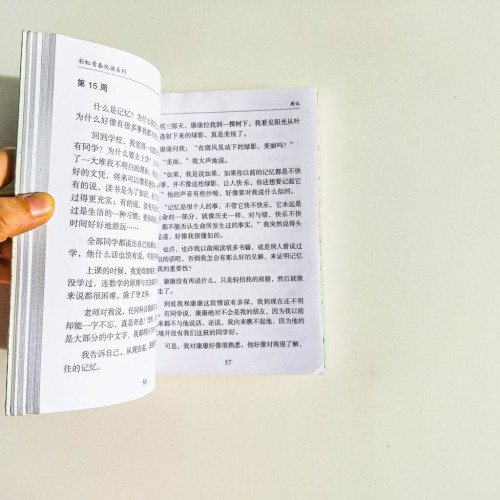 彩虹青春悦读系列
第 15 周
什么是记忆？为什么
为什么好像有很多事我都
回到学校，我觉得一切
有同学？为什么要去上学？
了一大堆我不明白的理由，
好的文凭，将来可以像我爸
有的说，读书是为了知识，
过得更充实；有的说，读书
过是生活的一种习惯；更有
时间好好地游玩……
全部同学都说出自己的看
他，他什么话也没有说，可是
上课的时候，我觉得
没学过，连数学的原理与方
来说都很困难，除了华文科。
老师对我说，任何科目
却能一字不忘，真是奇迹！
是大部分的中文字，我都明
我告诉自己，从现在起，我
往的记忆。
56
周记
明三那天，康康拉我到一棵树下，我看见阳光从叶
透射下来的绿影，真是美极了。
康康问我：“在微风晃动下的绿影，美丽吗？”
“美丽。”我大声地说。
“如果，我是说如果，如果你以前的记忆都是不快
事，并不像这些绿影，让人快乐，你还想要记起它
”他的声音有些沙哑，好像要对我说什么似的。
“记忆是很个人的事，不管它快不快乐，它永远是
生命的一部分，就像历史一样，对与错、快乐不快
都不能否认生命所发生过的事实。”我突然说得头
是道，好像我很懂似的。
也许，也许我以前阅读很多书籍，或是别人曾说过
似的话吧，否则我怎会有那么好的见解，来证明记忆
的重要性？
康康没有再说什么，只是轻拍我的肩膀，然后就微
走了。
到底我和康康这段情谊有多深，我到现在还不明
有同学说，康康绝对不会是我的朋友，因为我以前
来都不与他说话，还说，我向来瞧不起他，因为他的
境并没有我们这班的同学好。
可是，我对康康好像很熟悉，他好像对我很了解，
57